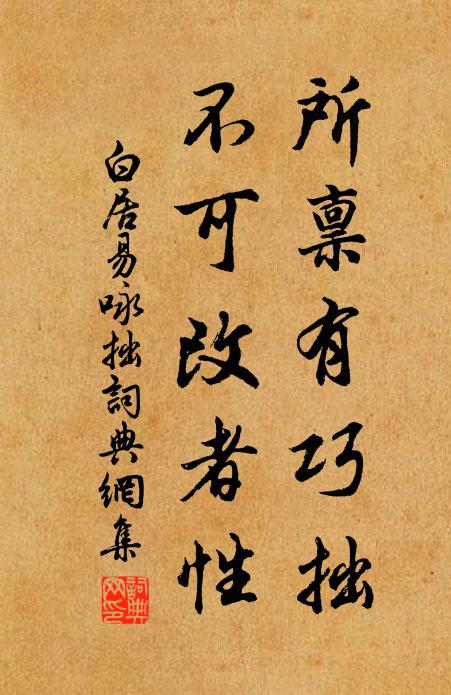 所禀有巧拙
不可改者性
白居易咏拙詞典網集
詞典
网印